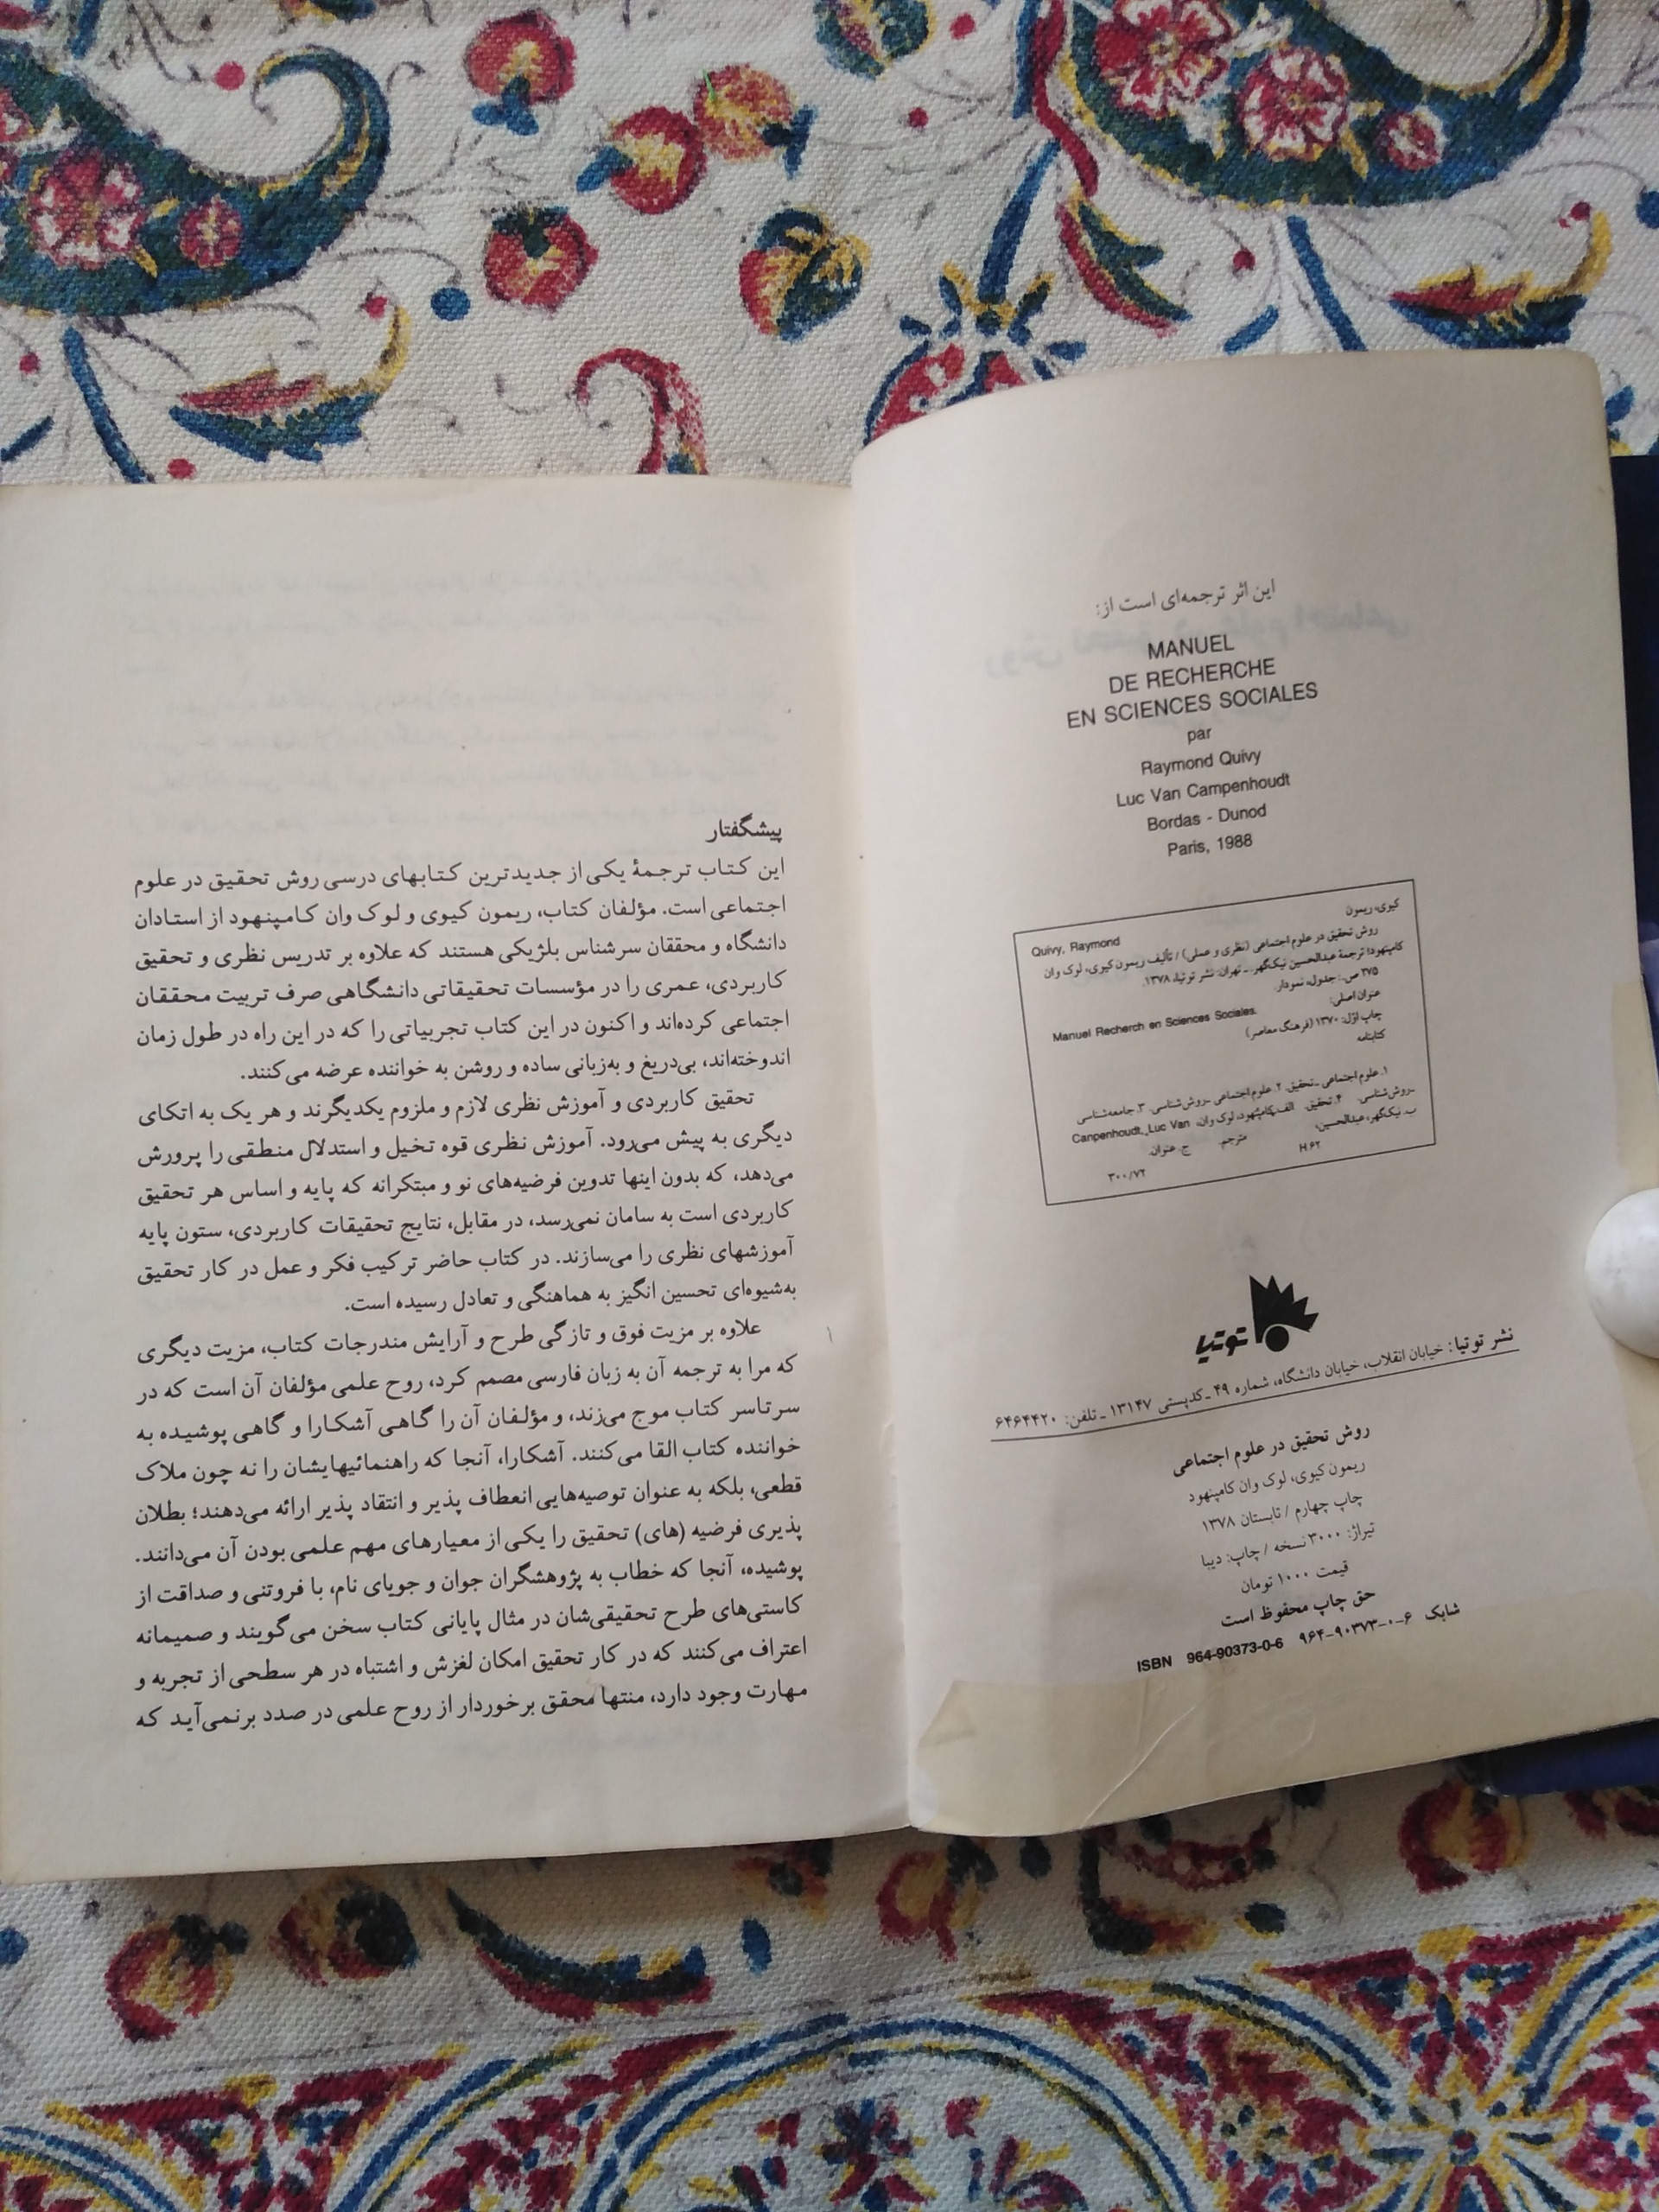 این اثر ترجمه‌ای است از:
MANUEL
DE RECHERCHE
EN SCIENCES SOCIALES
par
Raymond Quivy
Luc Van Campenhoudt
Bordas - Dunod
Paris, 1988
کیوی، ریمون
Quivy, Raymond
روش تحقیق در علوم اجتماعی (نظری و عملی) / تألیف ریمون کیوی، لوک وان
کامپنهود؛ ترجمهٔ عبدالحسین نیک‌گهر. ـ تهران: نشر توتیا، ۱۳۷۸.
۲۷۵ ص.: جدول، نمودار.
عنوان اصلی:
Manuel Recherch en Sciences Sociales.
چاپ اوّل: ۱۳۷۰ (فرهنگ معاصر)
کتابنامه
۱. علوم اجتماعی ـ تحقیق. ۲. علوم اجتماعی ـ روش‌شناسی. ۳. جامعه‌شناسی
ـ روش‌شناسی. ۴. تحقیق. الف. کامپنهود، لوک وان، Canpenhoudt, Luc Van
ب. نیک‌گهر، عبدالحسین، مترجم. ج. عنوان.
۳۰۰/۷۲ H ۶۲
توتیا
نشر توتیا: خیابان انقلاب، خیابان دانشگاه، شماره ۴۹ ـ کدپستی ۱۳۱۴۷ ـ تلفن: ۶۴۶۴۴۲۰
روش تحقیق در علوم اجتماعی
ریمون کیوی، لوک وان کامپنهود
چاپ چهارم / تابستان ۱۳۷۸
تیراژ: ۳۰۰۰ نسخه / چاپ: دیبا
قیمت ۱۰۰۰ تومان
حق چاپ محفوظ است
شابک ۶-۰-۹۰۳۷۳-۹۶۴ ISBN 964-90373-0-6
پیشگفتار
این کتاب ترجمهٔ یکی از جدیدترین کتابهای درسی روش تحقیق در علوم
اجتماعی است. مؤلفان کتاب، ریمون کیوی و لوک وان کامپنهود از استادان
دانشگاه و محققان سرشناس بلژیکی هستند که علاوه بر تدریس نظری و تحقیق
کاربردی، عمری را در مؤسسات تحقیقاتی دانشگاهی صرف تربیت محققان
اجتماعی کرده‌اند و اکنون در این کتاب تجربیاتی را که در این راه در طول زمان
اندوخته‌اند، بی‌دریغ و به‌زبانی ساده و روشن به خواننده عرضه می‌کنند.
تحقیق کاربردی و آموزش نظری لازم و ملزوم یکدیگرند و هر یک به اتکای
دیگری به پیش می‌رود. آموزش نظری قوه تخیل و استدلال منطقی را پرورش
می‌دهد، که بدون اینها تدوین فرضیه‌های نو و مبتکرانه که پایه و اساس هر تحقیق
کاربردی است به سامان نمی‌رسد، در مقابل، نتایج تحقیقات کاربردی، ستون پایه
آموزشهای نظری را می‌سازند. در کتاب حاضر ترکیب فکر و عمل در کار تحقیق
به‌شیوه‌ای تحسین انگیز به هماهنگی و تعادل رسیده است.
علاوه بر مزیت فوق و تازگی طرح و آرایش مندرجات کتاب، مزیت دیگری
که مرا به ترجمه آن به زبان فارسی مصمم کرد، روح علمی مؤلفان آن است که در
سرتاسر کتاب موج می‌زند، و مؤلفان آن را گاهی آشکارا و گاهی پوشیده به
خواننده کتاب القا می‌کنند. آشکارا، آنجا که راهنمائیهایشان را نه چون ملاک
قطعی، بلکه به عنوان توصیه‌هایی انعطاف پذیر و انتقاد پذیر ارائه می‌دهند؛ بطلان
پذیری فرضیه (های) تحقیق را یکی از معیارهای مهم علمی بودن آن می‌دانند.
پوشیده، آنجا که خطاب به پژوهشگران جوان و جویای نام، با فروتنی و صداقت از
کاستی‌های طرح تحقیقی‌شان در مثال پایانی کتاب سخن می‌گویند و صمیمانه
اعتراف می‌کنند که در کار تحقیق امکان لغزش و اشتباه در هر سطحی از تجربه و
مهارت وجود دارد، منتها محقق برخوردار از روح علمی در صدد برنمی‌آید که